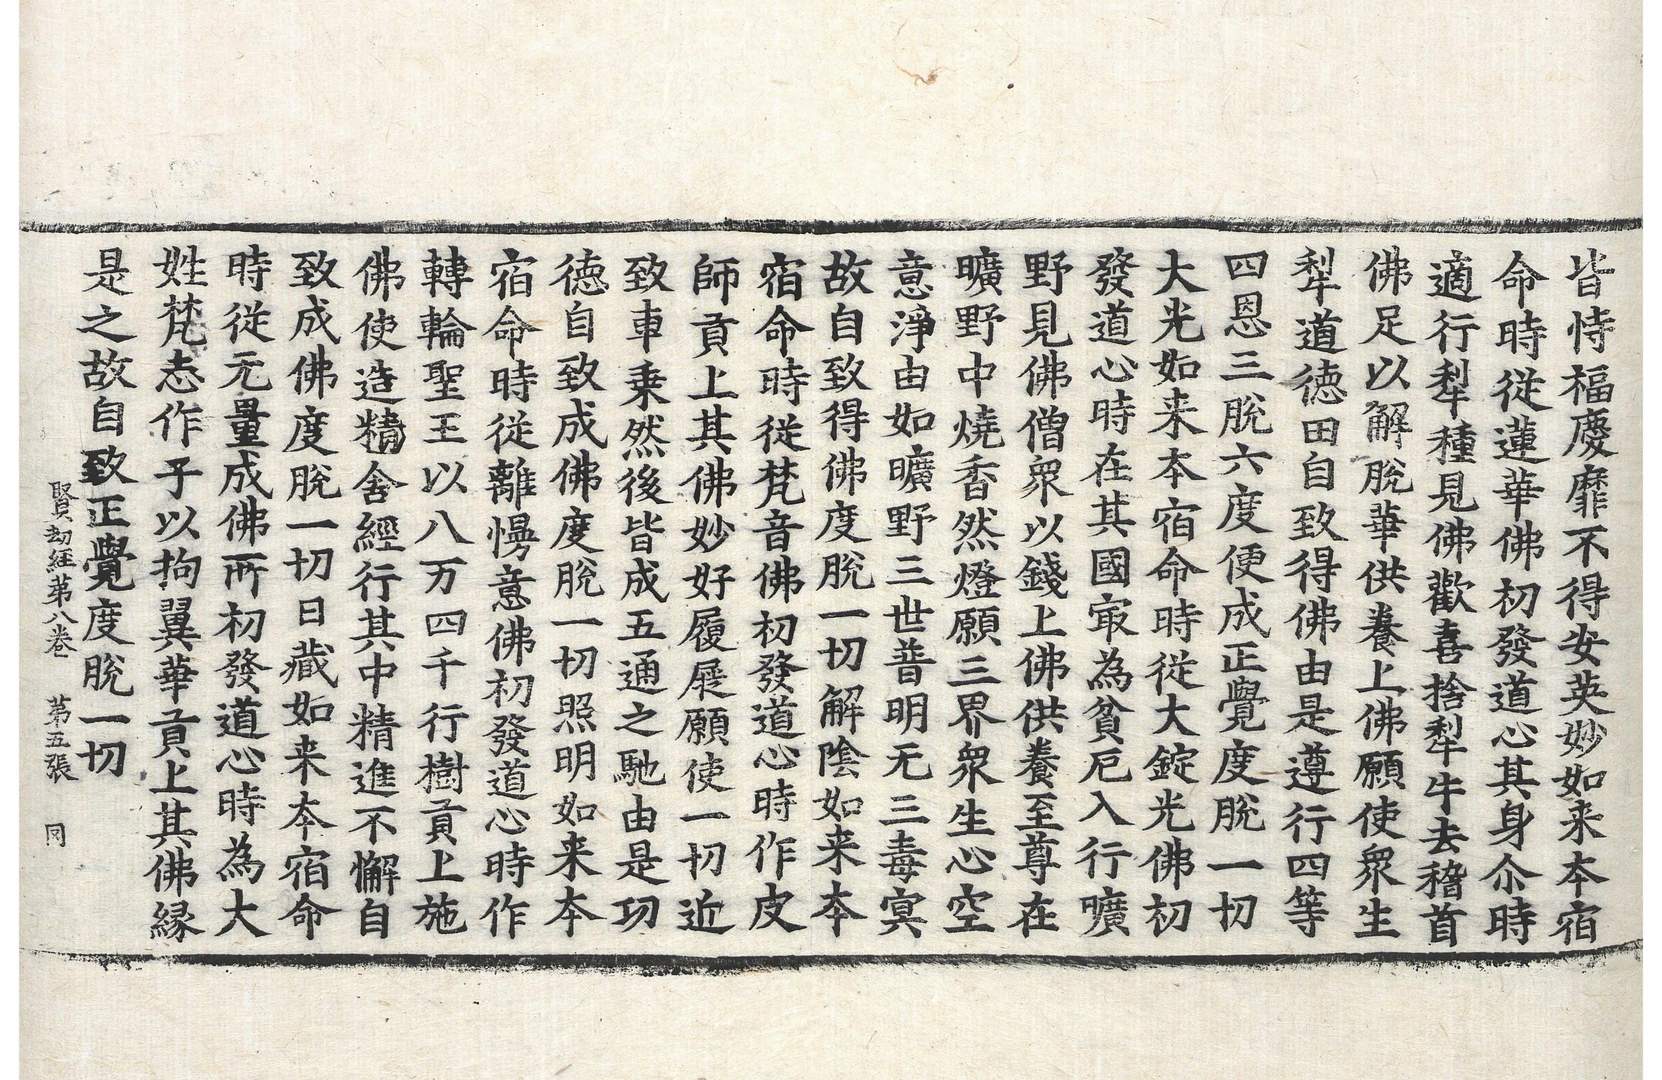 皆恃福慶靡不得安英妙如来本宿
命時從蓮華佛初發道心其身尒時
適行犁種見佛歡喜捨犁牛去稽首
佛足以解脫華供養上佛願使衆生
犁道德田自致得佛由是遵行四等
四恩三脫六度便成正覺度脫一切
大光如来本宿命時從大錠光佛初
發道心時在其國㝡為貧厄入行曠
野見佛僧衆以錢上佛供養至尊在
曠野中燒香然燈願三界衆生心空
意淨由如曠野三世普明无三毒冥
故自致得佛度脫一切解陰如来本
宿命時從梵音佛初發道心時作皮
師貢上其佛妙好履屣願使一切近
致車乗然後皆成五通之馳由是功
德自致成佛度脫一切照明如来本
宿命時從離慢意佛初發道心時作
轉輪聖王以八万四千行樹貢上施
佛使造精舍經行其中精進不懈自
致成佛度脫一切日藏如来本宿命
時從无量成佛所初發道心時為大
姓梵志作子以拘翼華貢上其佛緣
是之故自致正覺度脫一切
賢劫經苐八卷　苐五張　同